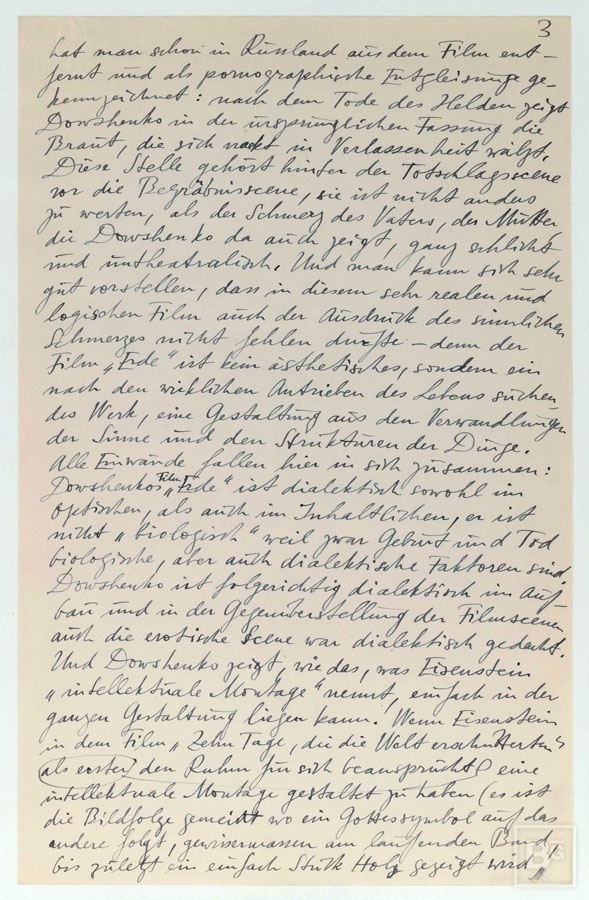 3
hat man schon in Russland aus dem Film ent-
fernt und als pornographische Entgleisung ge-
kennzeichnet: nach dem Tode des Helden zeigt
Dowshenko in der ursprünglichen Fassung die
Braut, die sich nackt in Verlassenheit wälzt.
Diese Stelle gehört hinter der Totschlagsscene
vor die Begräbnisscene, sie ist nicht anders
zu werten, als der Schmerz des Vaters, der Mutter,
die Dowshenko da auch zeigt, ganz schlicht
und untheatralisch. Und man kann sich sehr
gut vorstellen, dass in diesem sehr realen und
logischen Film auch der Ausdruck des sinnlichen
Schmerzes nicht fehlen durfte – denn der
Film „Erde" ist kein ästhetisches, sondern ein
nach den wirklichen Antrieben des Lebens suchen-
des Werk, eine Gestaltung aus den Verwandlungen
der Sinne und den Strukturen der Dinge.
Alle Einwände fallen hier in sich zusammen:
Dowshenkos Film „Erde" ist dialektisch sowohl im
optischen, als auch im Inhaltlichen, er ist
nicht „biologisch" weil zwar Geburt und Tod
biologische, aber auch dialektische Faktoren sind.
Dowshenko ist folgerichtig dialektisch im Auf-
bau und in der Gegenüberstellung der Filmscenen
auch die erotische Scene war dialektisch gedacht.
Und Dowshenko zeigt, wie das, was Eisenstein
„intellektuale Montage" nennt, einfach in der
ganzen Gestaltung liegen kann. Wenn Eisenstein
in dem Film „Zehn Tage, die die Welt erschütterten"
(als erster) den Ruhm für sich beansprucht, eine
intellektuale Montage gestaltet zu haben (es ist
die Bildfolge gemeint wo ein Gottessymbol auf das
andere folgt, gewissermassen am laufenden Band,
bis zuletzt ein einfach Stück Holz gezeigt wird,
BG